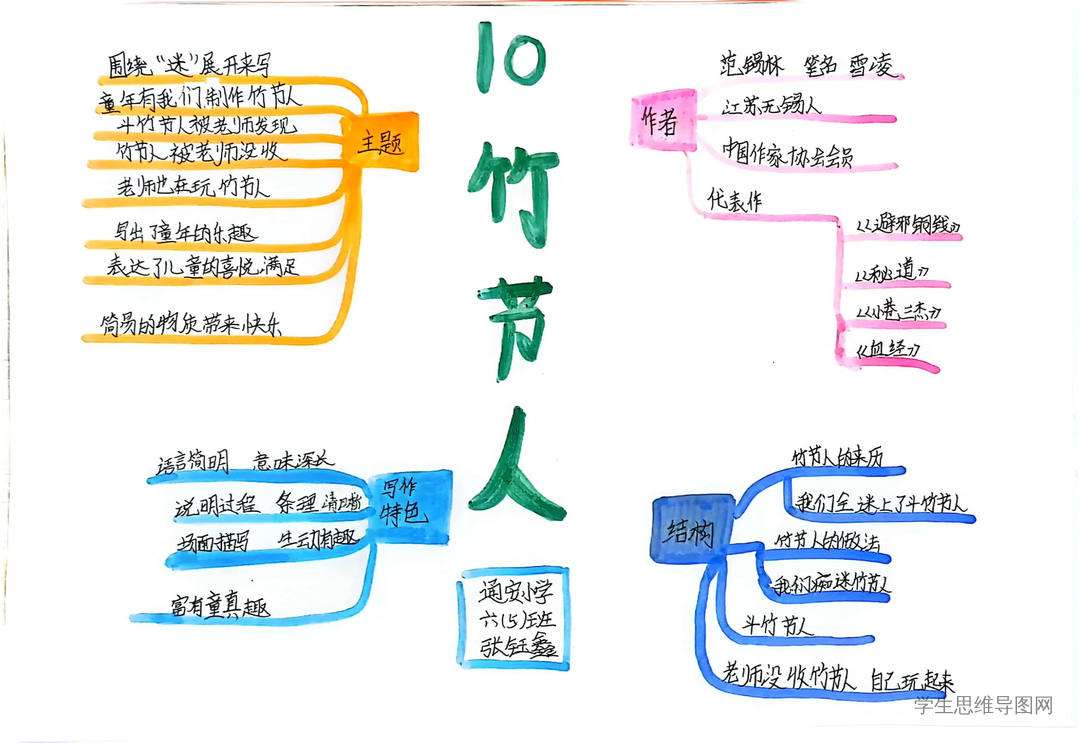 10 竹节人
主题
围绕“迷”展开来写
童年有我们制作竹节人
斗竹节人被老师发现
竹节人被老师没收
老师也在玩竹节人
写出了童年的乐趣
表达了儿童的喜悦、满足
简易的物质带来快乐
作者
范锡林 笔名 雪凌
江苏无锡人
中国作家协会会员
代表作
《避邪铜钱》
《秘道》
《小巷三杰》
《血经》
写作
特色
语言简明 意味深长
说明过程 条理清晰
场面描写 生动有趣
富有童真趣
通安小学
六(5)班
张钰鑫
结构
竹节人的来历
我们全迷上了斗竹节人
竹节人的做法
我们痴迷竹节人
斗竹节人
老师没收竹节人 自己玩起来
学生思维导图网